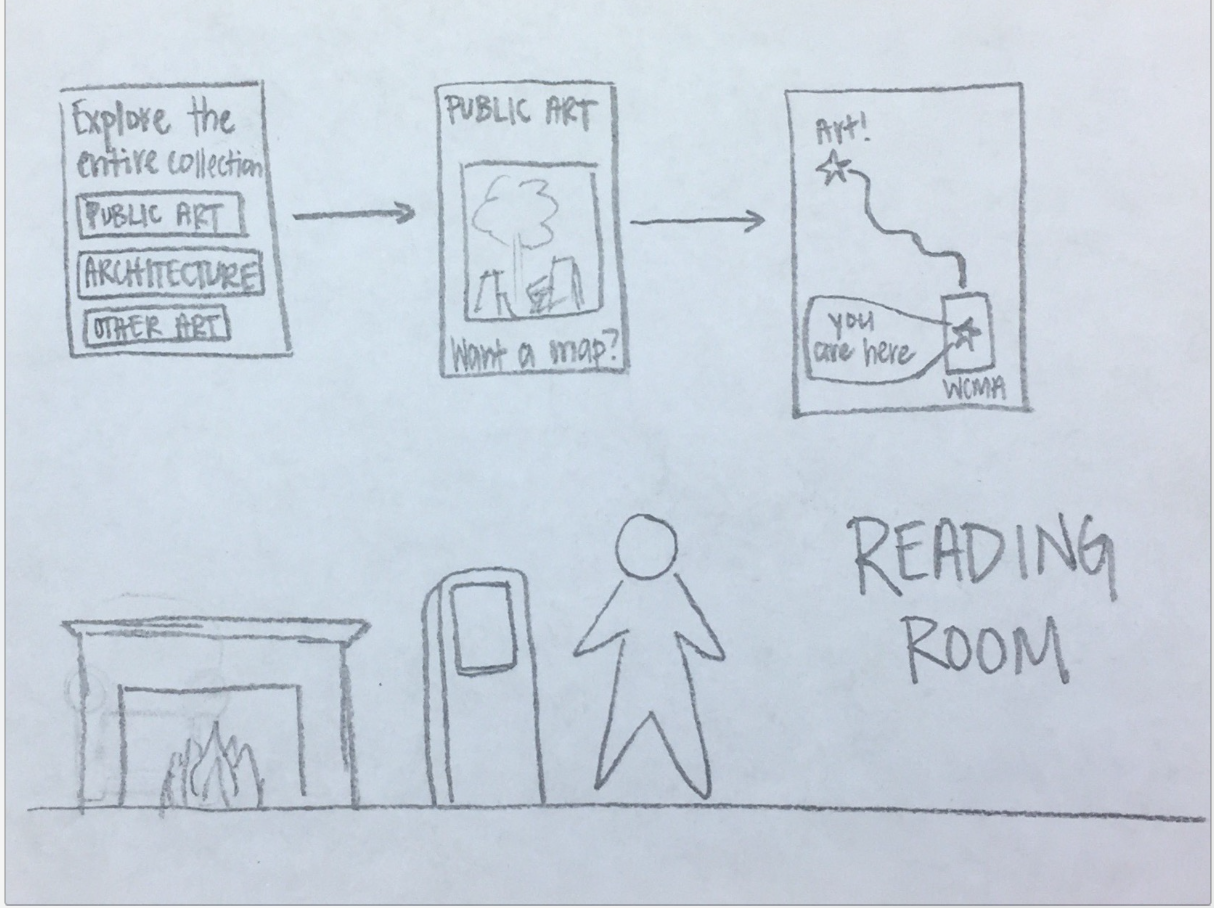 Explore the
entire collection
PUBLIC ART
ARCHITECTURE
OTHER ART
PUBLIC ART
Want a map?
Art!
you
are here
WCMA
READING
ROOM